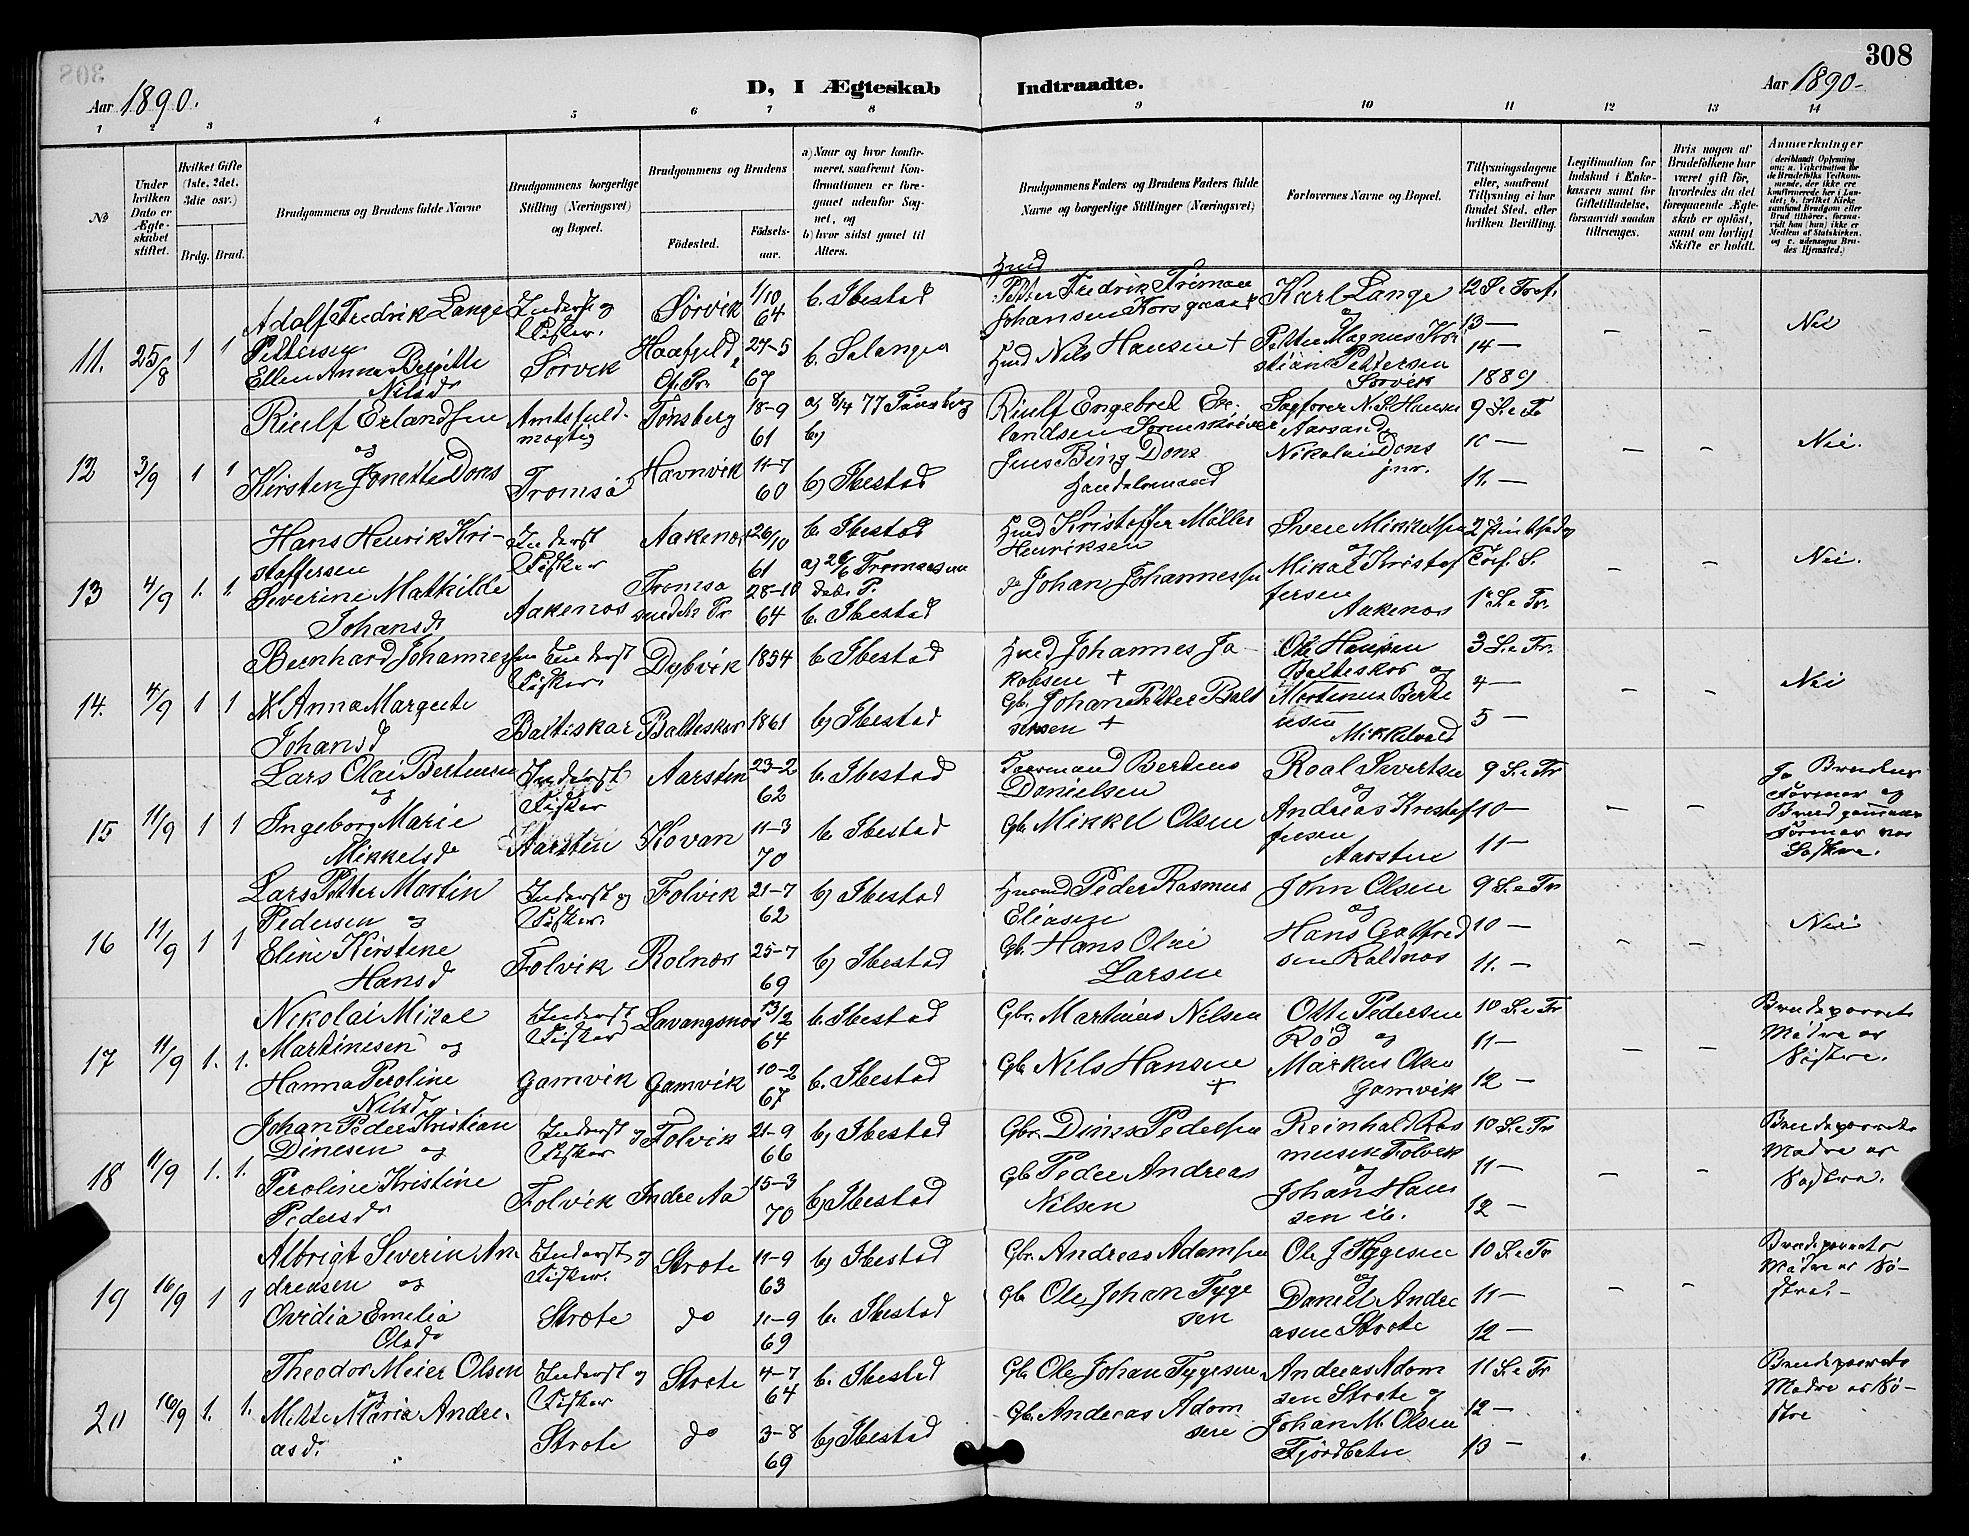 308
D, I Ægteskab Indtraadte.
Aar 1890.
Aar 1890-
1 2 3 4 5 6 7 8 9 10 11 12 13 14
No
Under hvilken Dato er Ægteskabet stiftet.
Hvilket Gifte (1ste, 2det, 3die osv.)
Brdg. Brud.
Brudgommens og Brudens fulde Navne
Brudgommens borgerlige Stilling (Næringsvei) og Bopæl.
Brudgommens og Brudens
Fødested.
Fødsels-aar.
a) Naar og hvor konfirmeret, saafremt Konfirmationen er foregaaet udenfor Sognet, og
b) hvor sidst gaaet til Alters.
Brudgommens Faders og Brudens Faders fulde Navne og borgerlige Stillinger (Næringsvei)
Forlovernes Navne og Bopæl.
Tillysningsdagene eller, saafremt Tillysning ei har fundet Sted, efter hvilken Bevilling.
Legitimation for Indskud i Enkekassen samt for Giftetilladelse, forsaavidt saadan tiltrænges.
Hvis nogen af Brudefolkene har været gift før, hvorledes da det foregaaende Ægteskab er opløst, samt om lovligt Skifte er holdt.
Anmærkninger
11. 25/8 1 1
Adolf Fredrik Lange Pettersen
Ellen Anna Bergitte Nilsd
Inderst og Fisker.
Sørvik
Sørvik 1/10 64
Haafjeld, Of. Pr. 27-5 67
b. Ibestad
b. Salangen
Husd Petter Fredrik Triman Johansen Korsgaard
Husd Nils Hansen +
Karl Lange
og
Petter Magnus Kristian Pettersen Sørvik
12 S. e Tref.
13 —
14 —
1889
Nei
12 3/9 1 1
Riulf Erlandsen
og
Kirsten Jonette Dons
Amtsfuldmægtig
Tromsø
Tønsberg 18-9 61
Havnvik 11-7 60
a) 8/4 77 Tønsberg
b)
b) Ibestad
Riulf Engebret Erlandsen Sorenskriver
Jens Bing Dons
Handelsmand
Sagfører N. S. Hansen
Aarsand
Nikolai Dons jnr.
9 S. e Tr
10 —
11. —
Nei.
13 4/9 1. 1.
Hans Henrik Kristoffersen
Severine Mathilde Johansd
Inderst Fisker
Aakenes
Aakenes 26/10 61
Tromsøsundets Pr 28-10 64
b. Ibestad
b. Ibestad
Husd Kristoffer Møller Henriksen
do Johan Johannessen
Sven Mikkelsen
og
Mikal Kristoffersen
Aakenes
2 Pintsedag
Tref. S.
1e S. e Tr.
Nei.
14. 4/9 1 1
Bernhard Johannessen
Anna Margrete Johansd
Inderst Fisker.
Balteskar
Dybvik 1854
Balteskar 1861
b Ibestad
b) Ibestad
Husd Johannes Jakobsen +
Gb. Johan Petter Baltsersen +
Ole Hansen
Balteskar og
Martinus Berteusen
Mikkelvold
3 S. e Tr.
4 —
5 —
Nei
15 11/9 1 1
Lars Olai Berteusen
og
Ingeborg Marie Mikkelsd
Inderst Fisker
Aarsten
Aarsten 23-2 62
Kovan 11-3 70
b. Ibestad
b. Ibestad
Huusmand Berteus Danielsen
Gb. Mikkel Olsen
Roal Sivertsen
og
Andreas Kristoffersen
Aarsten
9 S. e Tr
10 —
11 —
Ja Brudens Formor og Brudgommens Formor var Søstre.
16 11/9 1 1
Lars Petter Martin Pedersen og
Eline Kirstine Hansd
Inderst og Fisker.
Folvik
Folvik 21-7 62
Rolnæs 25-7 69
b) Ibestad
b) Ibestad
Husmd Peder Rasmus Eliasen
Gb. Hans Olai Larsen
John Olsen
og
Hans Godtfredsen Roldnæs
9 S. e Tr
10 —
11. —
Nei
17 11/9 1. 1.
Nikolai Mikal Martinesen og
Hanna Peroline Nilsd
Inderst Fisker
Gamvik
Lavangsnæs 13/2 64
Gamvik 10-2 67
b. Ibestad
b. Ibestad
Gbr. Martinus Nilsen
Gb. Nils Hansen +
Otte Pedersen Rød og
Markus Olsen Gamvik
10 S. e Tr
11 —
12 —
Brudeparrets Mødre er Søstre.
18 11/9 1. 1.
Johan Peder Kristian Dinesen og
Peroline Kristine Pedersd
Inderst og Fisker
Folvik
Folvik 21-9 66
Indre Aa 15-3 70
b) Ibestad
b) Ibestad
Gbr. Dines Pedersen
Gb Peder Andreas Nilsen
Reinhald Rasmusen Folvik
og
Johan Hansen ib.
10 S. e Tr
11 —
12 —
Brudeparrets Mødre er Søstre.
19 16/9 1 1
Albrigt Severin Andreasen og
Ovidia Emelia Olsd
Inderst og Fisker.
Strøte
Strøte 11-9 63
do 11-9 69
b) Ibestad
b. Ibestad
Gbr. Andreas Adamsen
Gb. Ole Johan Tygesen
Ole J Tygesen
og
Daniel Andreasen Strøte
10 S. e Tr
11 —
12 —
Brudeparrets Mødre er Søstre. -
20 16/9 1. 1.
Theodor Meier Olsen
og
Mette Maria Andreasd.
Inderst og Fisker
Strøte
Strøte 4-7 64
do 3-8 69
b. Ibestad
b) Ibestad
Gb. Ole Johan Tygesen
Gb. Andreas Adamsen
Andreas Adamsen Strøte og
Johan M. Olsen
Fjordbotn
11 S. e Tr
12 —
13 —
Brudeparrets Mødre er Søstre